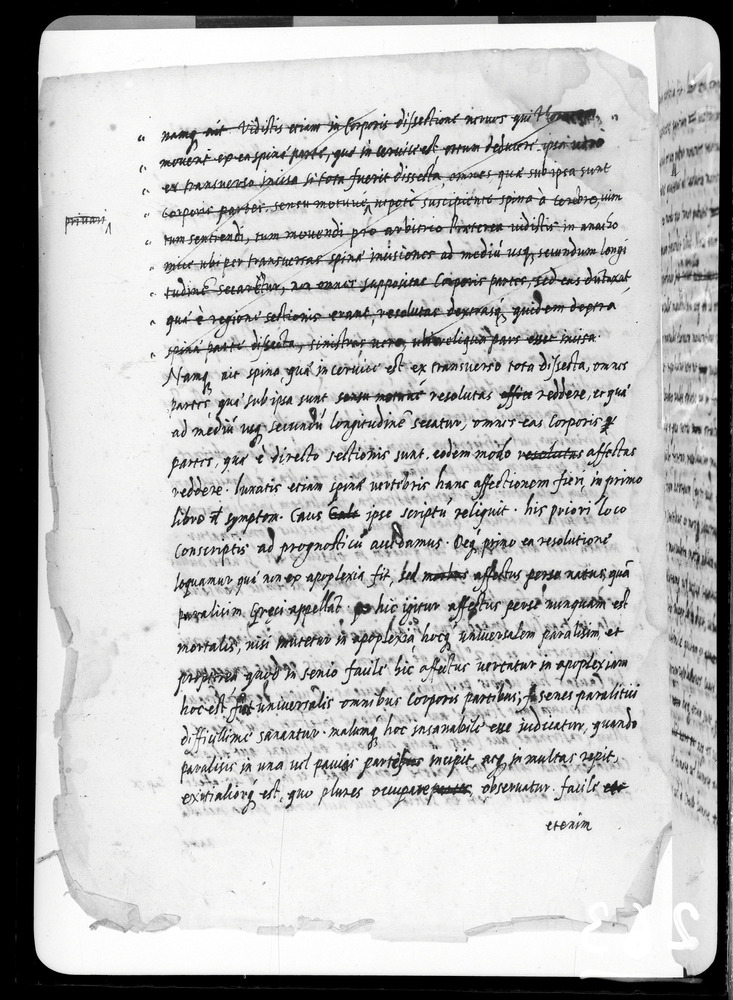 namq ait vidistis etiam in corporis dissectione nervos qui
movent ex ea spinę parte, quę in cervice est ortum deducere, ipsa vero
ex transverso incisa si tota fuerit dissecta omnes quę sub ipsa sunt
corporis partes, sensu motuve, utpote suscipiente spina à cerebro, vim
privari
tum sentiendi, tum movendi pro arbitrio Praeterea vidistis in anatho
mice ubi per transversas spinę incisiones ad mediũ usq, secundum longi
tudinẽ secaretur, non omnes suppositae corporis partes, sed eas dũtaxat
quę è regione sectionis erant, resolutas dextrasq, quidem dextra
spinę parte dissecta, sinistras vero, ubi reliqua pars esset incisa
Namq ait spina quę in cervice est ex transverso tota dissecta, omnes
partes quę sub ipsa sunt sensu resolutas reddere, et quę
ad mediũ usq secundũ longitudinẽ secatur, omnes eas corporis
partes, quę è directo sectionis sunt. eodem modo resolutas affectas
reddere. luxatis etiam spinę vertebris hanc affectionem fieri, in primo
libro de symptom. caus Gale ipse scriptũ reliquit. his priori loco
conscriptis ad prognosticũ accedamus. Deq, primo ea resolutione
loquamur quę non ex apoplexia fit, sed morbus affectus per se natus, quã
paralisim Gręci appellãt. hic igitur affectus per se nunquam est
mortalis, nisi mutetur in apoplexiã hocq universalem paralisim, et
propterea quod in senio facile hic affectus vertatur in apoplexiam
hoc est universalis omnibus corporis partibus, senes paralitici
difficillime sanantur. malumq hoc insanabile esse iudicatur, quando
paralisis in una vel paucis partibus incipit, atq in multas repit,
exitialiorq est, quo plures occupare partes observatur. facile
etenim
263